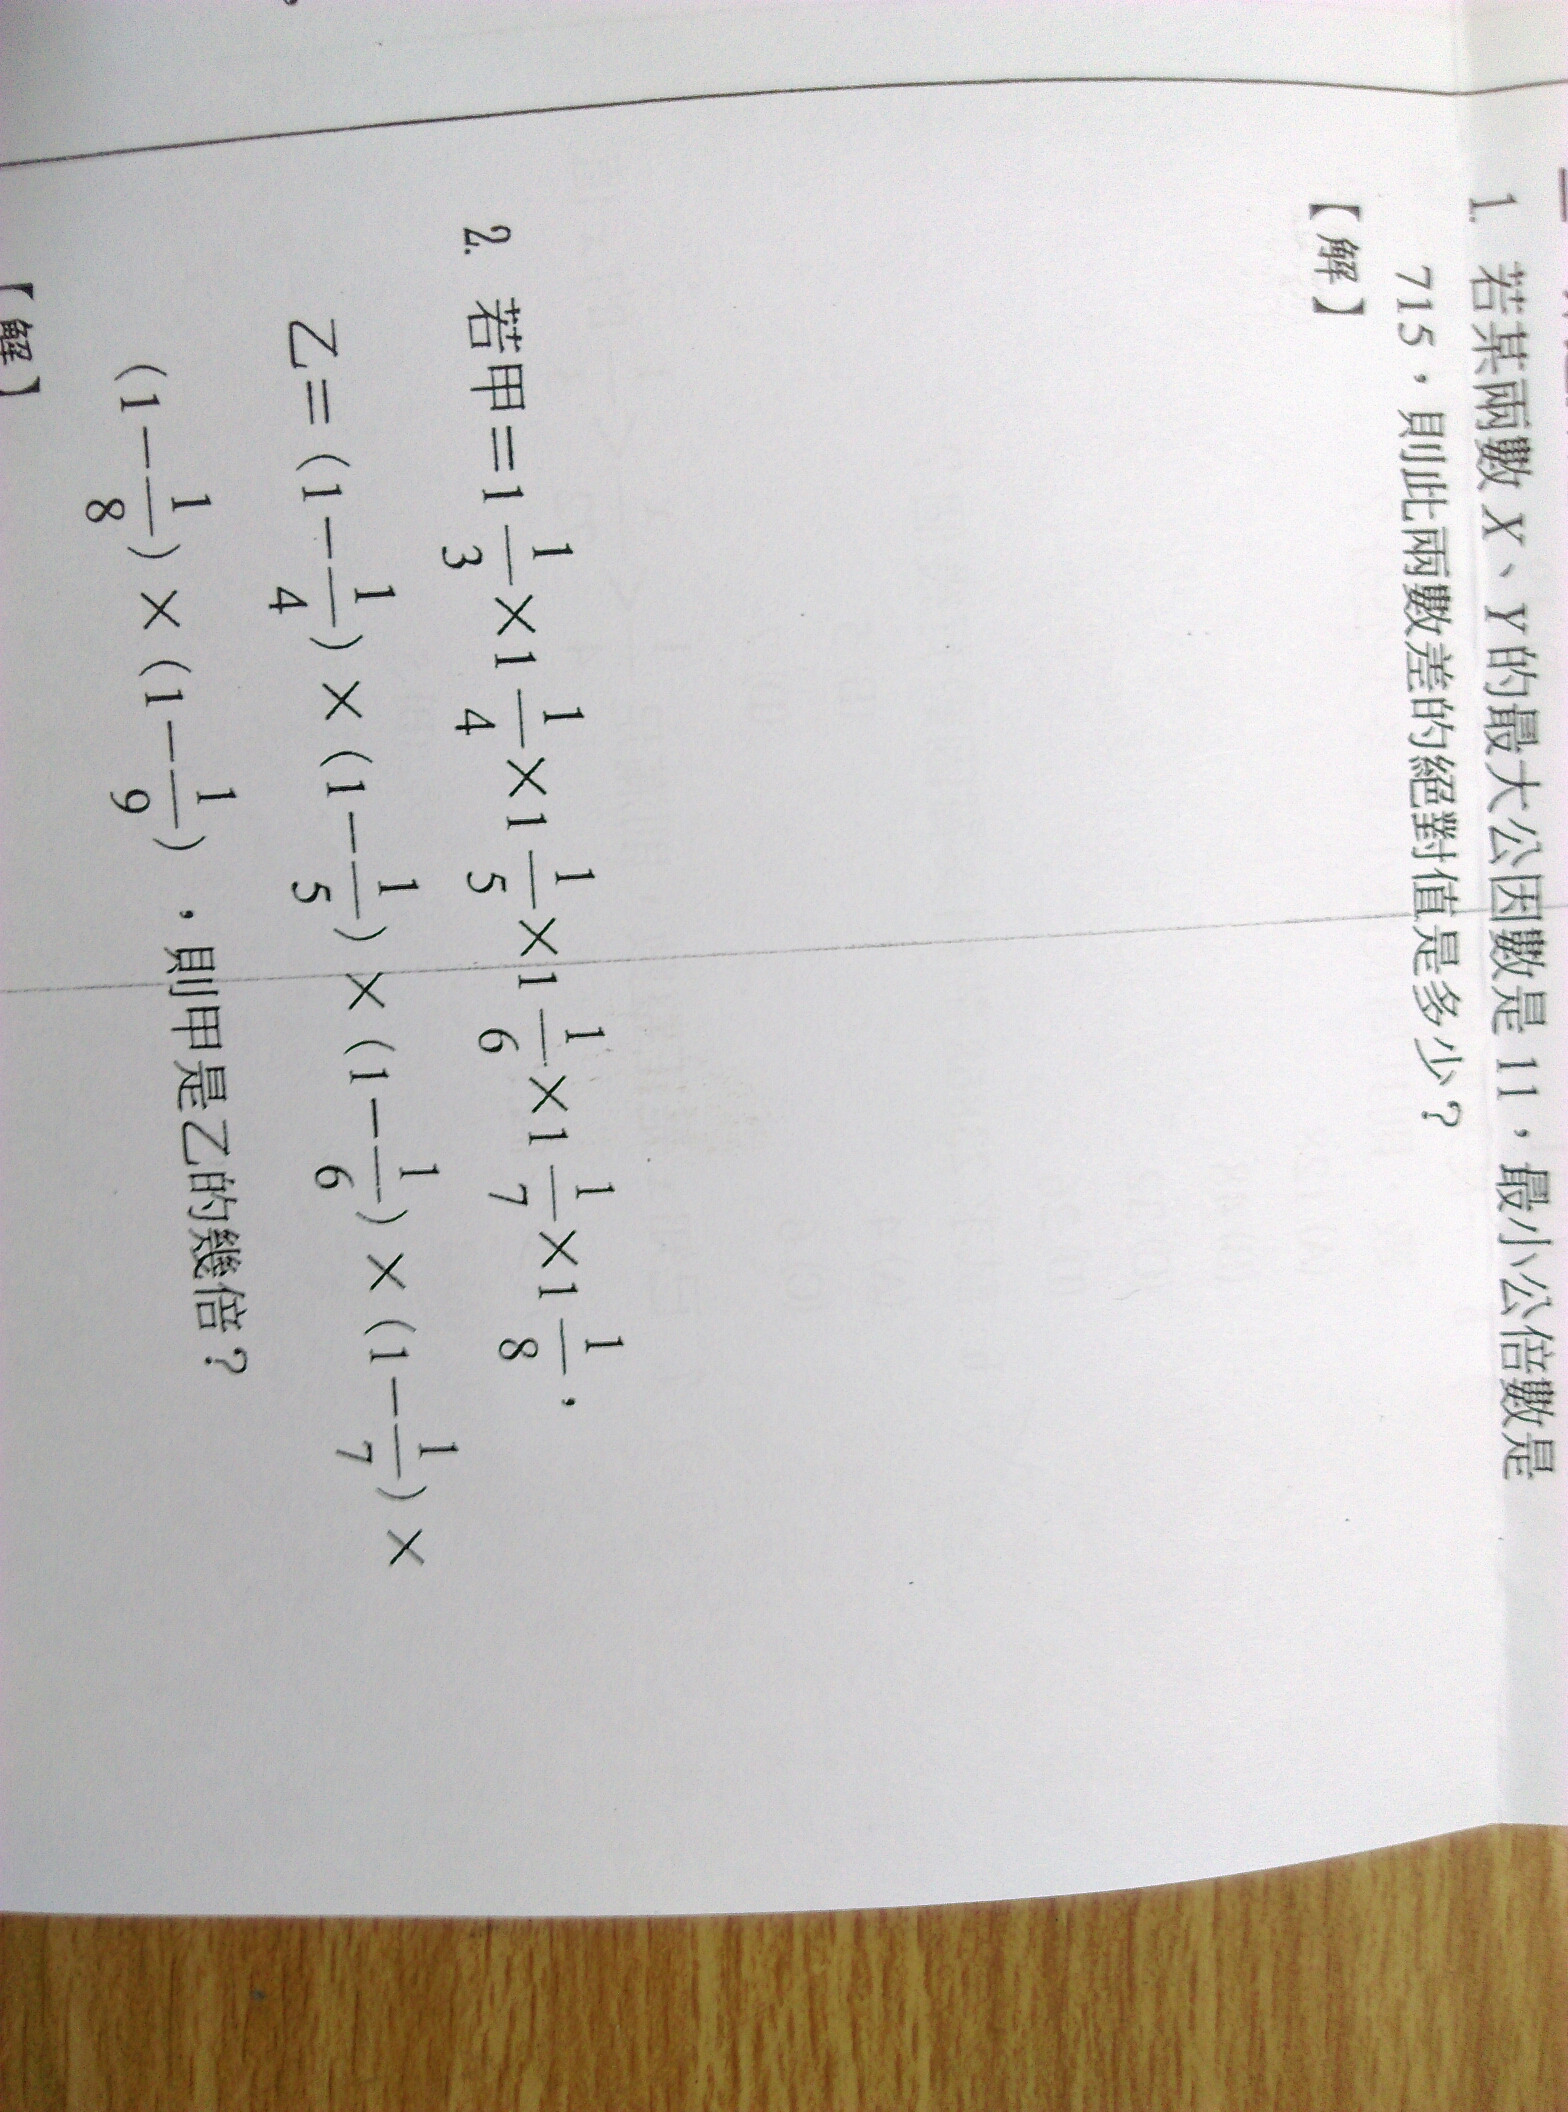 1. 若某兩數 X、Y 的最大公因數是 11，最小公倍數是
715，則此兩數差的絕對值是多少？
【解】
2. 若甲＝1 1/3 × 1 1/4 × 1 1/5 × 1 1/6 × 1 1/7 × 1 1/8，
乙＝(1－1/4)×(1－1/5)×(1－1/6)×(1－1/7)×
(1－1/8)×(1－1/9)，則甲是乙的幾倍？
【解】